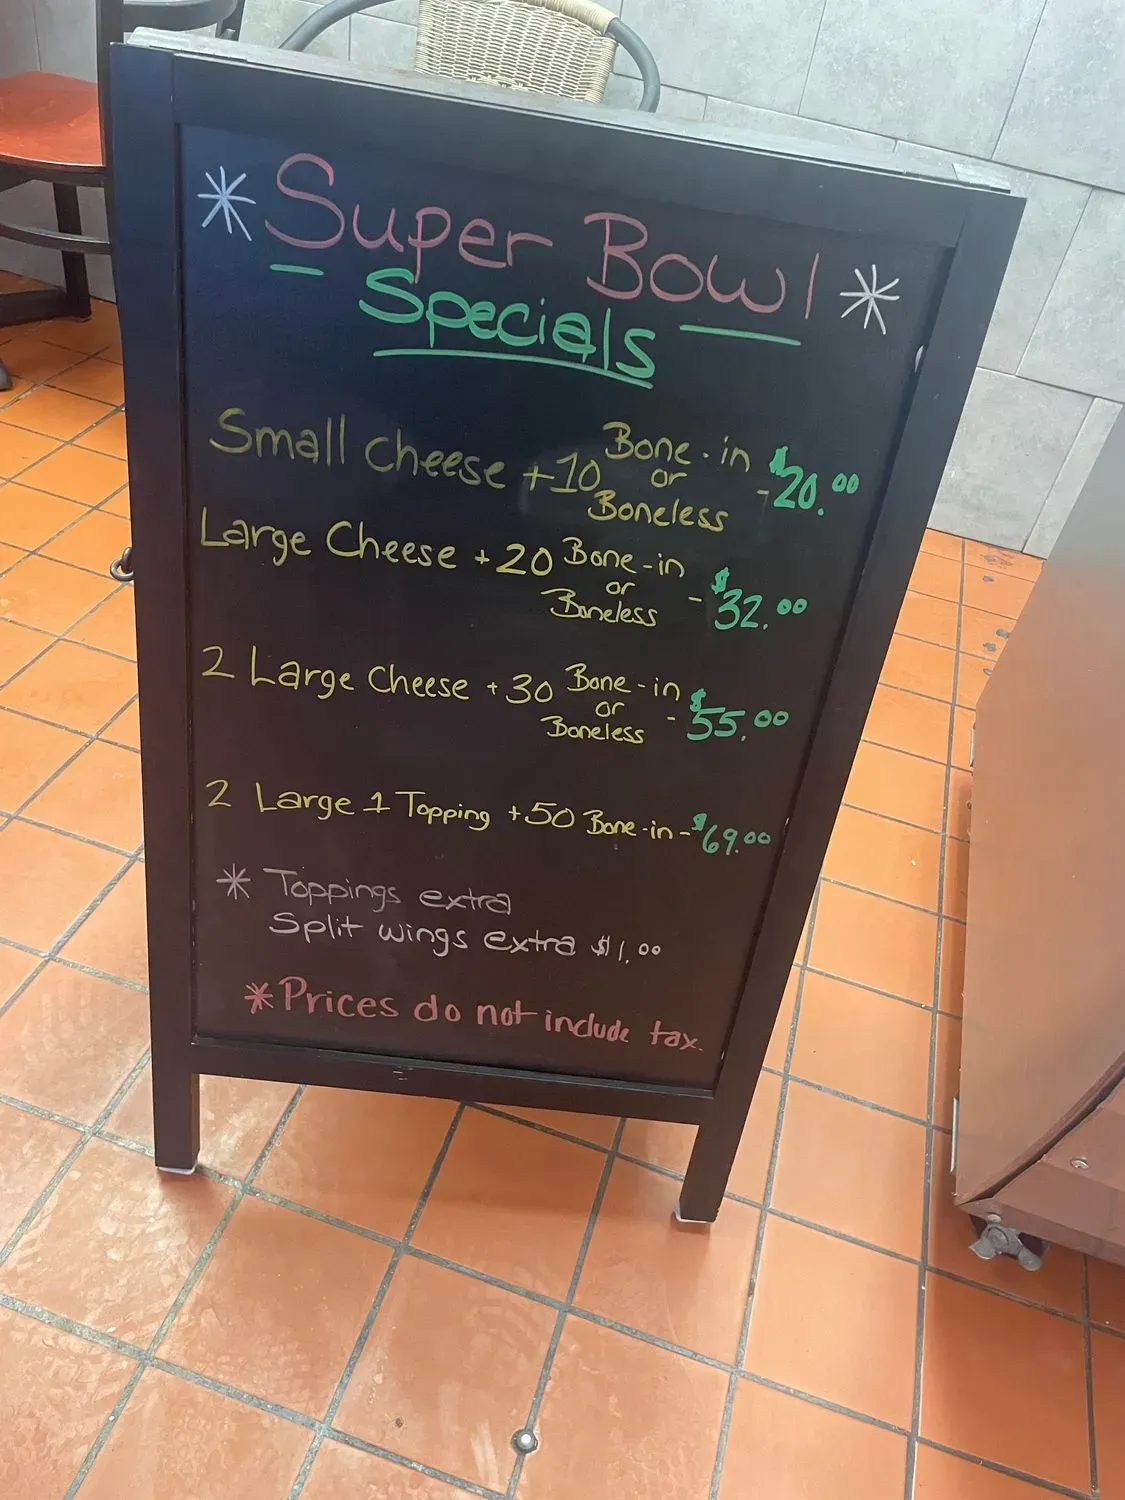 * Super Bowl *
Specials
Small Cheese +10 Bone-in or Boneless - $20.00
Large Cheese +20 Bone-in or Boneless - $32.00
2 Large Cheese +30 Bone-in or Boneless - $55.00
2 Large 1 Topping +50 Bone-in - $69.00
* Toppings extra
Split wings extra $1.00
*Prices do not include tax.